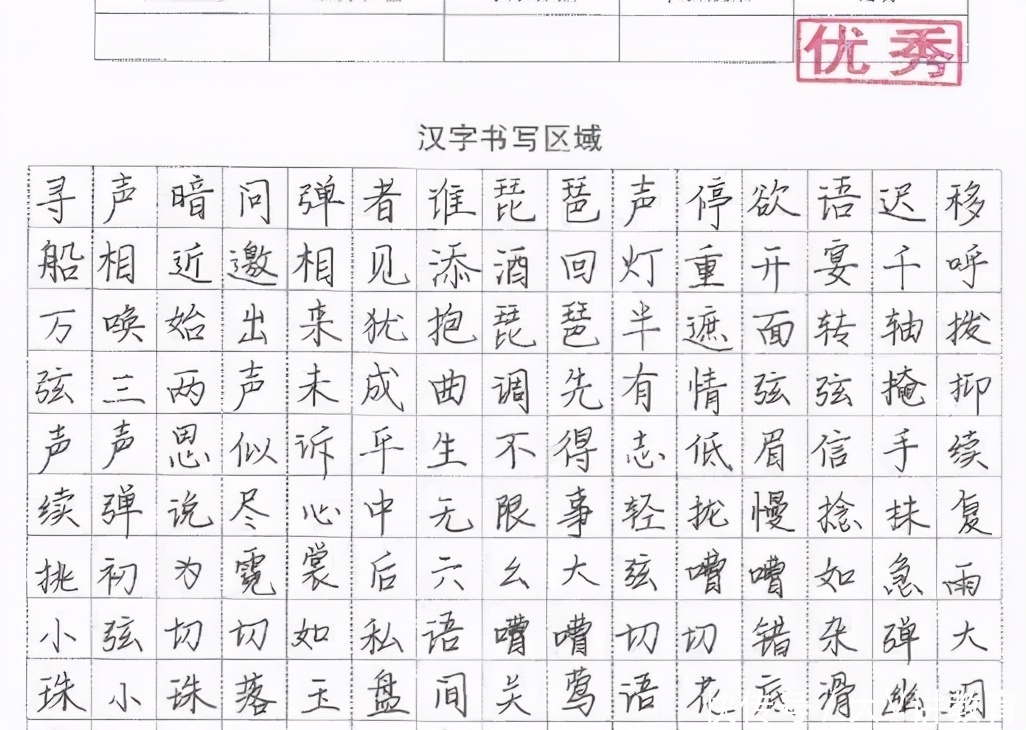 优秀
汉字书写区域
寻声暗问弹者谁琵琶声停欲语迟移
船相近邀相见添酒回灯重开宴千呼
万唤始出来犹抱琵琶半遮面转轴拨
弦三两声未成曲调先有情弦弦掩抑
声声思似诉平生不得志低眉信手续
续弹说尽心中无限事轻拢慢捻抹复
挑初为霓裳后六幺大弦嘈嘈如急雨
小弦切切如私语嘈嘈切切错杂弹大
珠小珠落玉盘间关莺语花底滑幽
教育